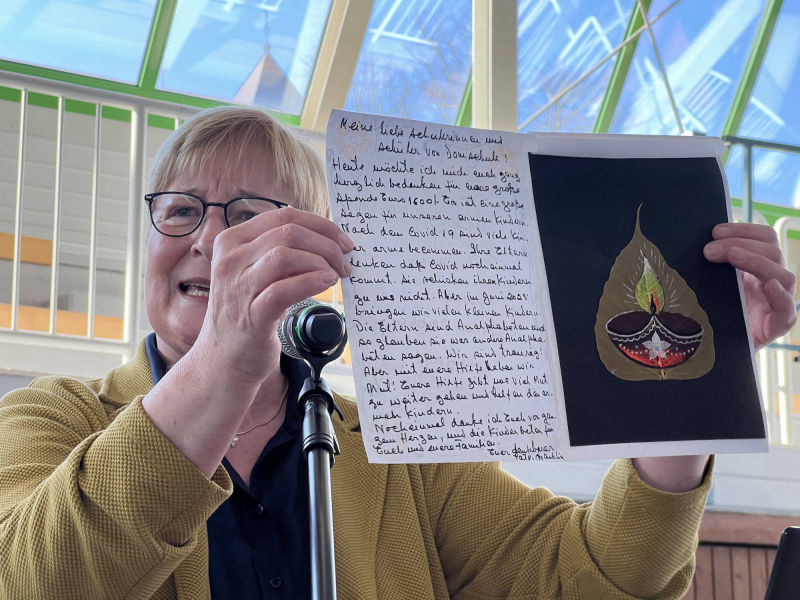 Meine liebe Schülerinnen und
Schüler von Domschule!
Heute möchte ich mich euch ganz
herzlich bedenken für eure große
Spende Euro 1600/- Es ist eine große
Segen für unseren armen Kindern.
Nach dem Covid 19 sind viele Kin-
der arms bekommen. Ihre Eltern
denken daß Covid nocheinmal
kommt. Sie schicken ihren Kindern
zu uns nicht. Aber im Juni 2025
bringen wir vielen kleinen Kindern.
Die Eltern sind Analphabeten und
so glauben sie was andere Analpha-
beten sagen. Wir sind traurig!
Aber mit euere Hilfe haben wir
Mut! Euere Hilfe gibt uns viel Mut
zu weiter gehen und helfen den ar-
men Kindern.
Nocheinmal danke ich Euch von gan-
zen Herzen, und die Kinder beten für
Euch und euere Familien.
Euer dankbarer